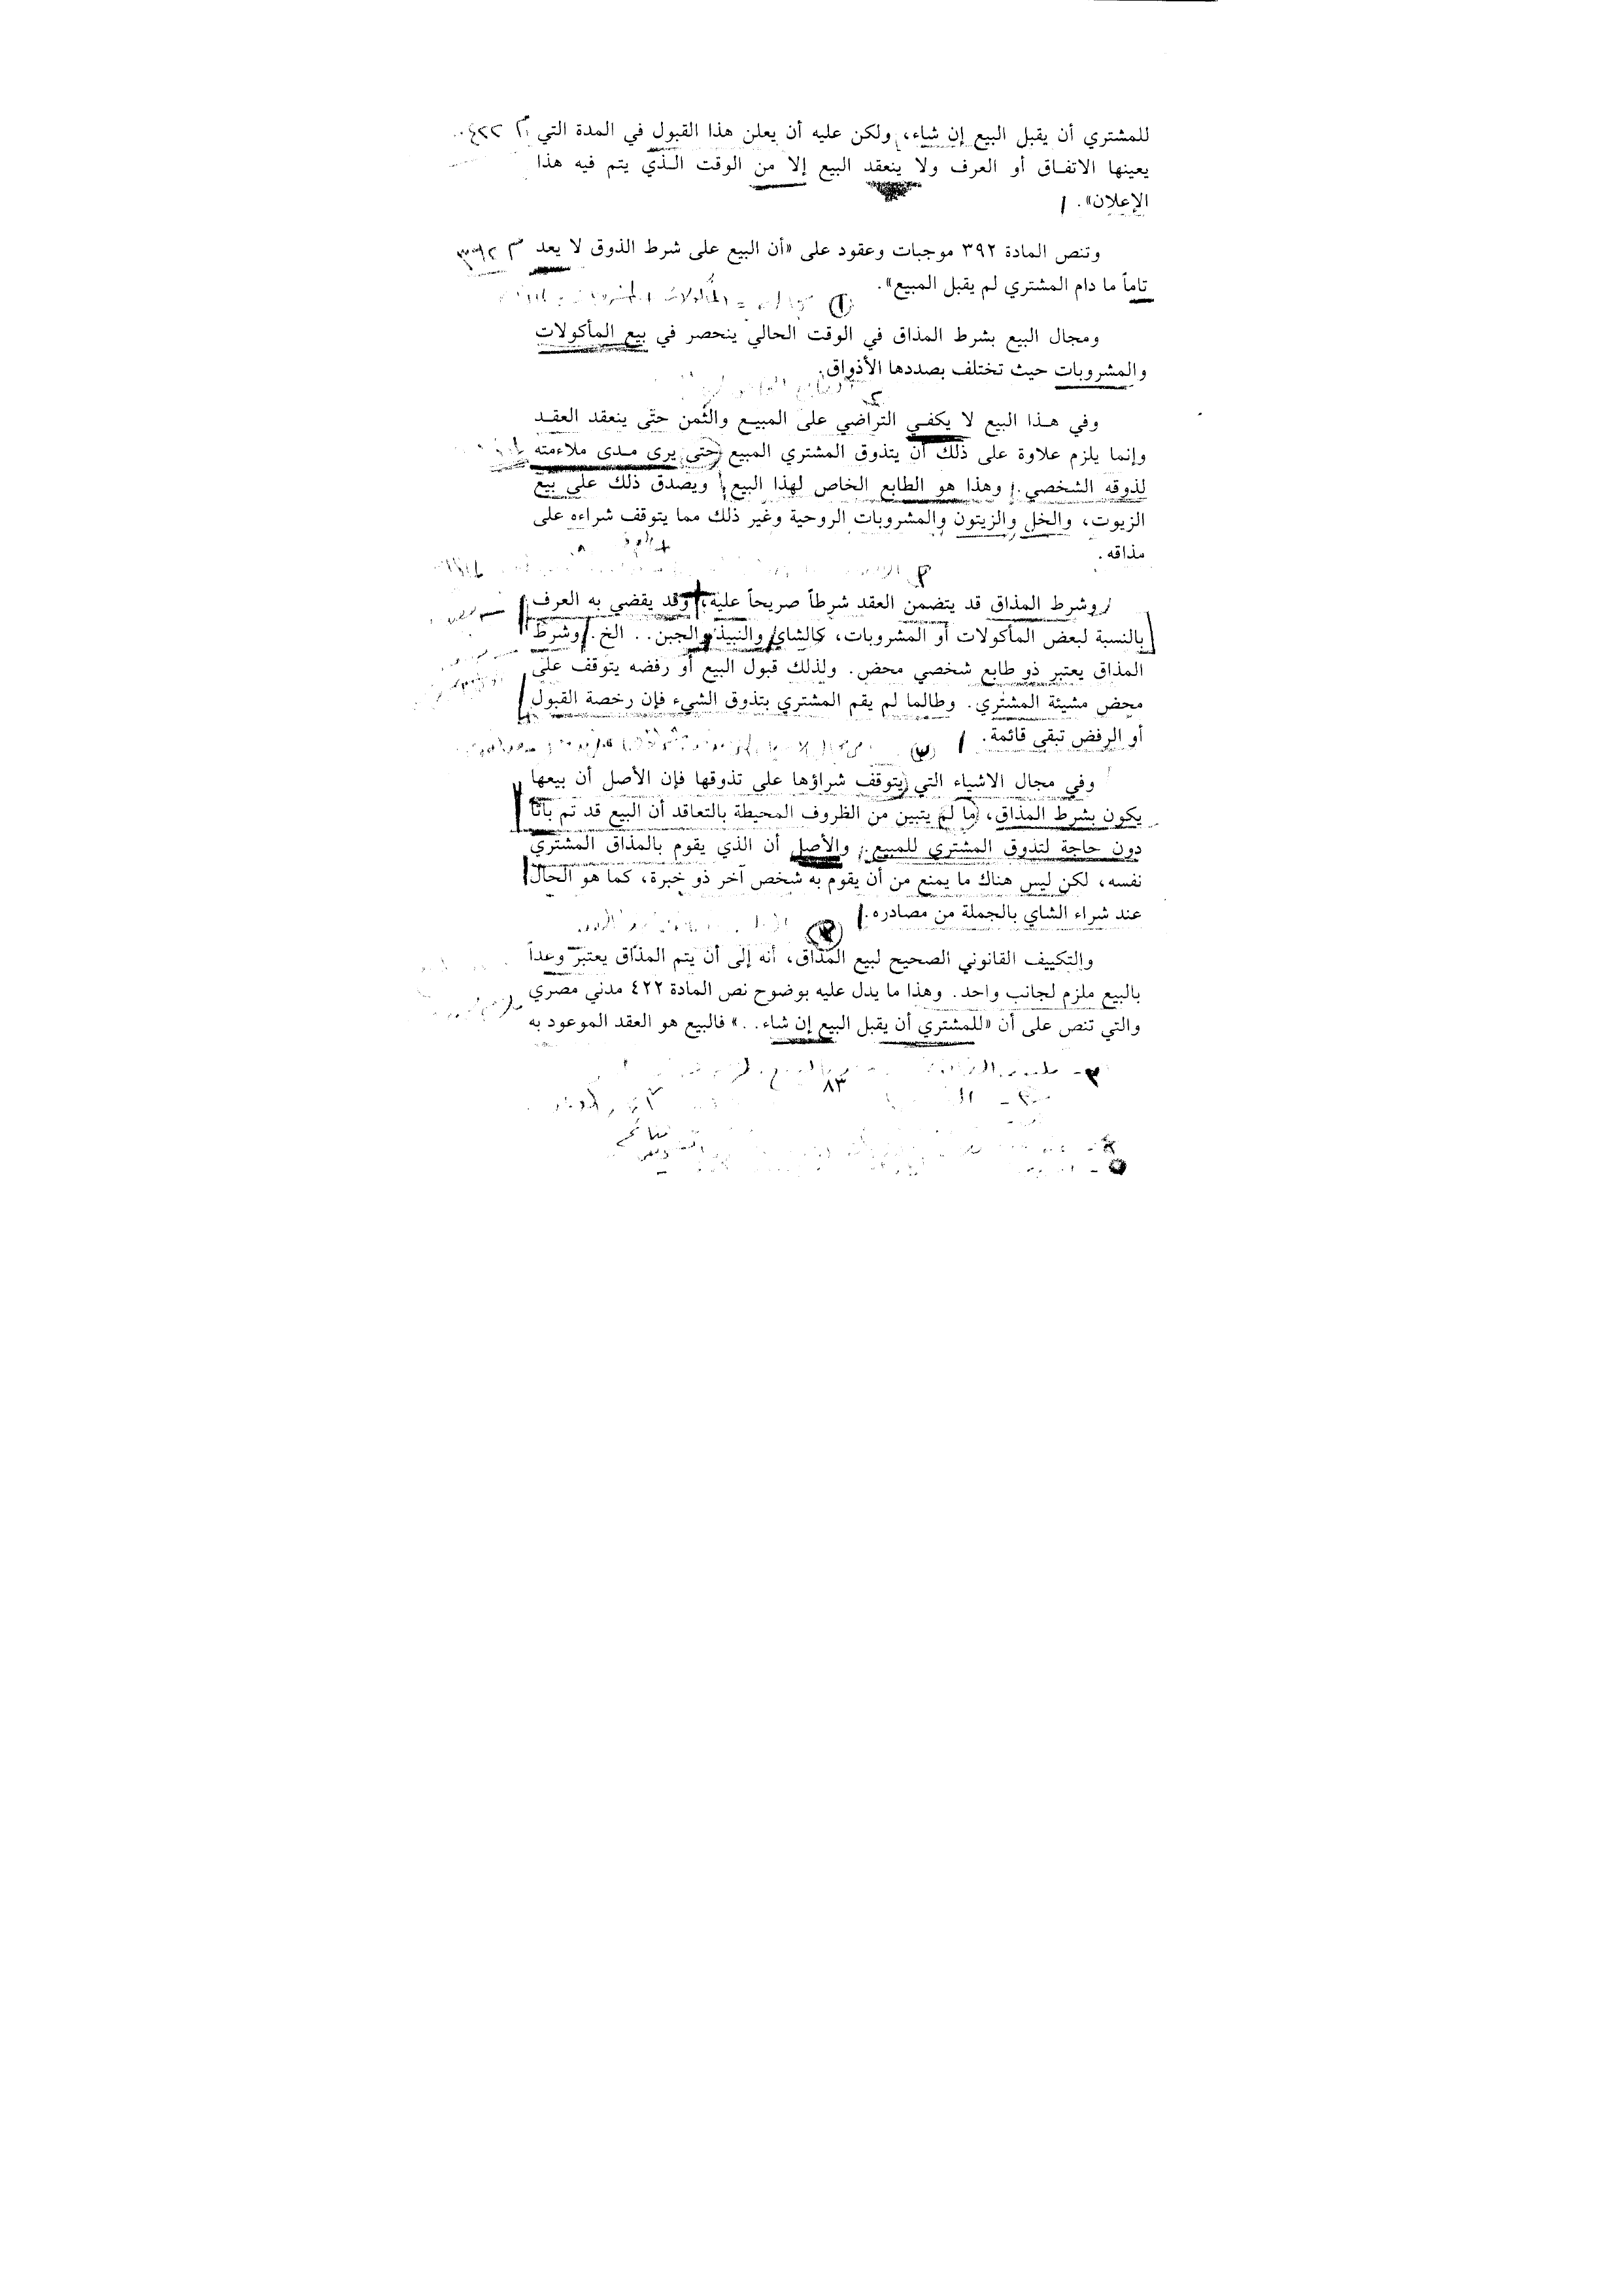 للمشتري أن يقبل البيع إن شاء، ولكن عليه أن يعلن هذا القبول في المدة التي
يعينها الاتفاق أو العرف ولا ينعقد البيع إلا من الوقت الذي يتم فيه هذا
الإعلان».
وتنص المادة ٣٩٢ موجبات وعقود على «أن البيع على شرط الذوق لا يعد م ٣٩٢
تاماً ما دام المشتري لم يقبل المبيع».
ومجال البيع بشرط المذاق في الوقت الحالي ينحصر في بيع المأكولات
والمشروبات حيث تختلف بصددها الأذواق.
وفي هذا البيع لا يكفي التراضي على المبيع والثمن حتى ينعقد العقد
وإنما يلزم علاوة على ذلك أن يتذوق المشتري المبيع حتى يرى مدى ملاءمته
لذوقه الشخصي. وهذا هو الطابع الخاص لهذا البيع ويصدق ذلك على بيع
الزيوت، والخل والزيتون والمشروبات الروحية وغير ذلك مما يتوقف شراءه على
مذاقه.
وشرط المذاق قد يتضمن العقد شرطاً صريحاً عليه، وقد يقضي به العرف
بالنسبة لبعض المأكولات أو المشروبات، كالشاي والنبيذ والجبن.. الخ. وشرط
المذاق يعتبر ذو طابع شخصي محض. ولذلك قبول البيع أو رفضه يتوقف على
محض مشيئة المشتري. وطالما لم يقم المشتري بتذوق الشيء فإن رخصة القبول
أو الرفض تبقى قائمة.
وفي مجال الاشياء التي يتوقف شراؤها على تذوقها فإن الأصل أن بيعها
يكون بشرط المذاق، ما لم يتبين من الظروف المحيطة بالتعاقد أن البيع قد تم باتاً
دون حاجة لتذوق المشتري للمبيع. والأصل أن الذي يقوم بالمذاق المشتري
نفسه، لكن ليس هناك ما يمنع من أن يقوم به شخص آخر ذو خبرة، كما هو الحال
عند شراء الشاي بالجملة من مصادره.
والتكييف القانوني الصحيح لبيع المذاق، أنه إلى أن يتم المذاق يعتبر وعداً
بالبيع ملزم لجانب واحد. وهذا ما يدل عليه بوضوح نص المادة ٤٢٢ مدني مصري
والتي تنص على أن «للمشتري أن يقبل البيع إن شاء..» فالبيع هو العقد الموعود به
٨٣